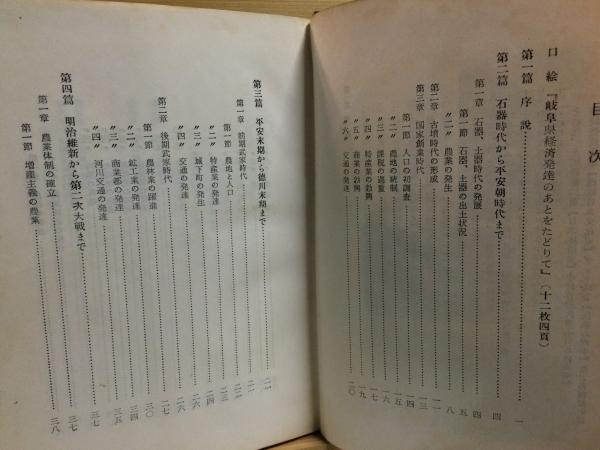 目次
口絵『岐阜県経済発達のあとをたどりて』(十二枚四頁)
第一篇 序説……一
第二篇 石器時代から平安朝時代まで……四
第一章 石器、土器時代の発展……四
第一節 石器、土器の出土状況……五
〃二〃 農業の発生……八
第二章 古墳時代の形成……一一
第三章 国家創業時代……一三
第一節 人口の初調査……一四
〃二〃 農地の統制……一五
〃三〃 課税の過重……一六
〃四〃 特産業の勃興……一七
〃五〃 商業の勃興……一九
〃六〃 交通の発達……二〇
第三篇 平安末期から徳川末期まで……二一
第一章 前期武家時代……二一
第一節 農地と人口……二二
〃二〃 特産業の発達……二四
〃三〃 城下町の発生……二六
〃四〃 交通の発達……二六
第二章 後期武家時代……二七
第一節 農林業の躍進……三〇
〃二〃 鉱工業の発達……三四
〃三〃 商業都の発達……三五
〃四〃 河川交通の発達……三七
第四篇 明治維新から第二次大戦まで……三七
第一章 農業体制の確立……三八
第一節 増産主義の農業……三八